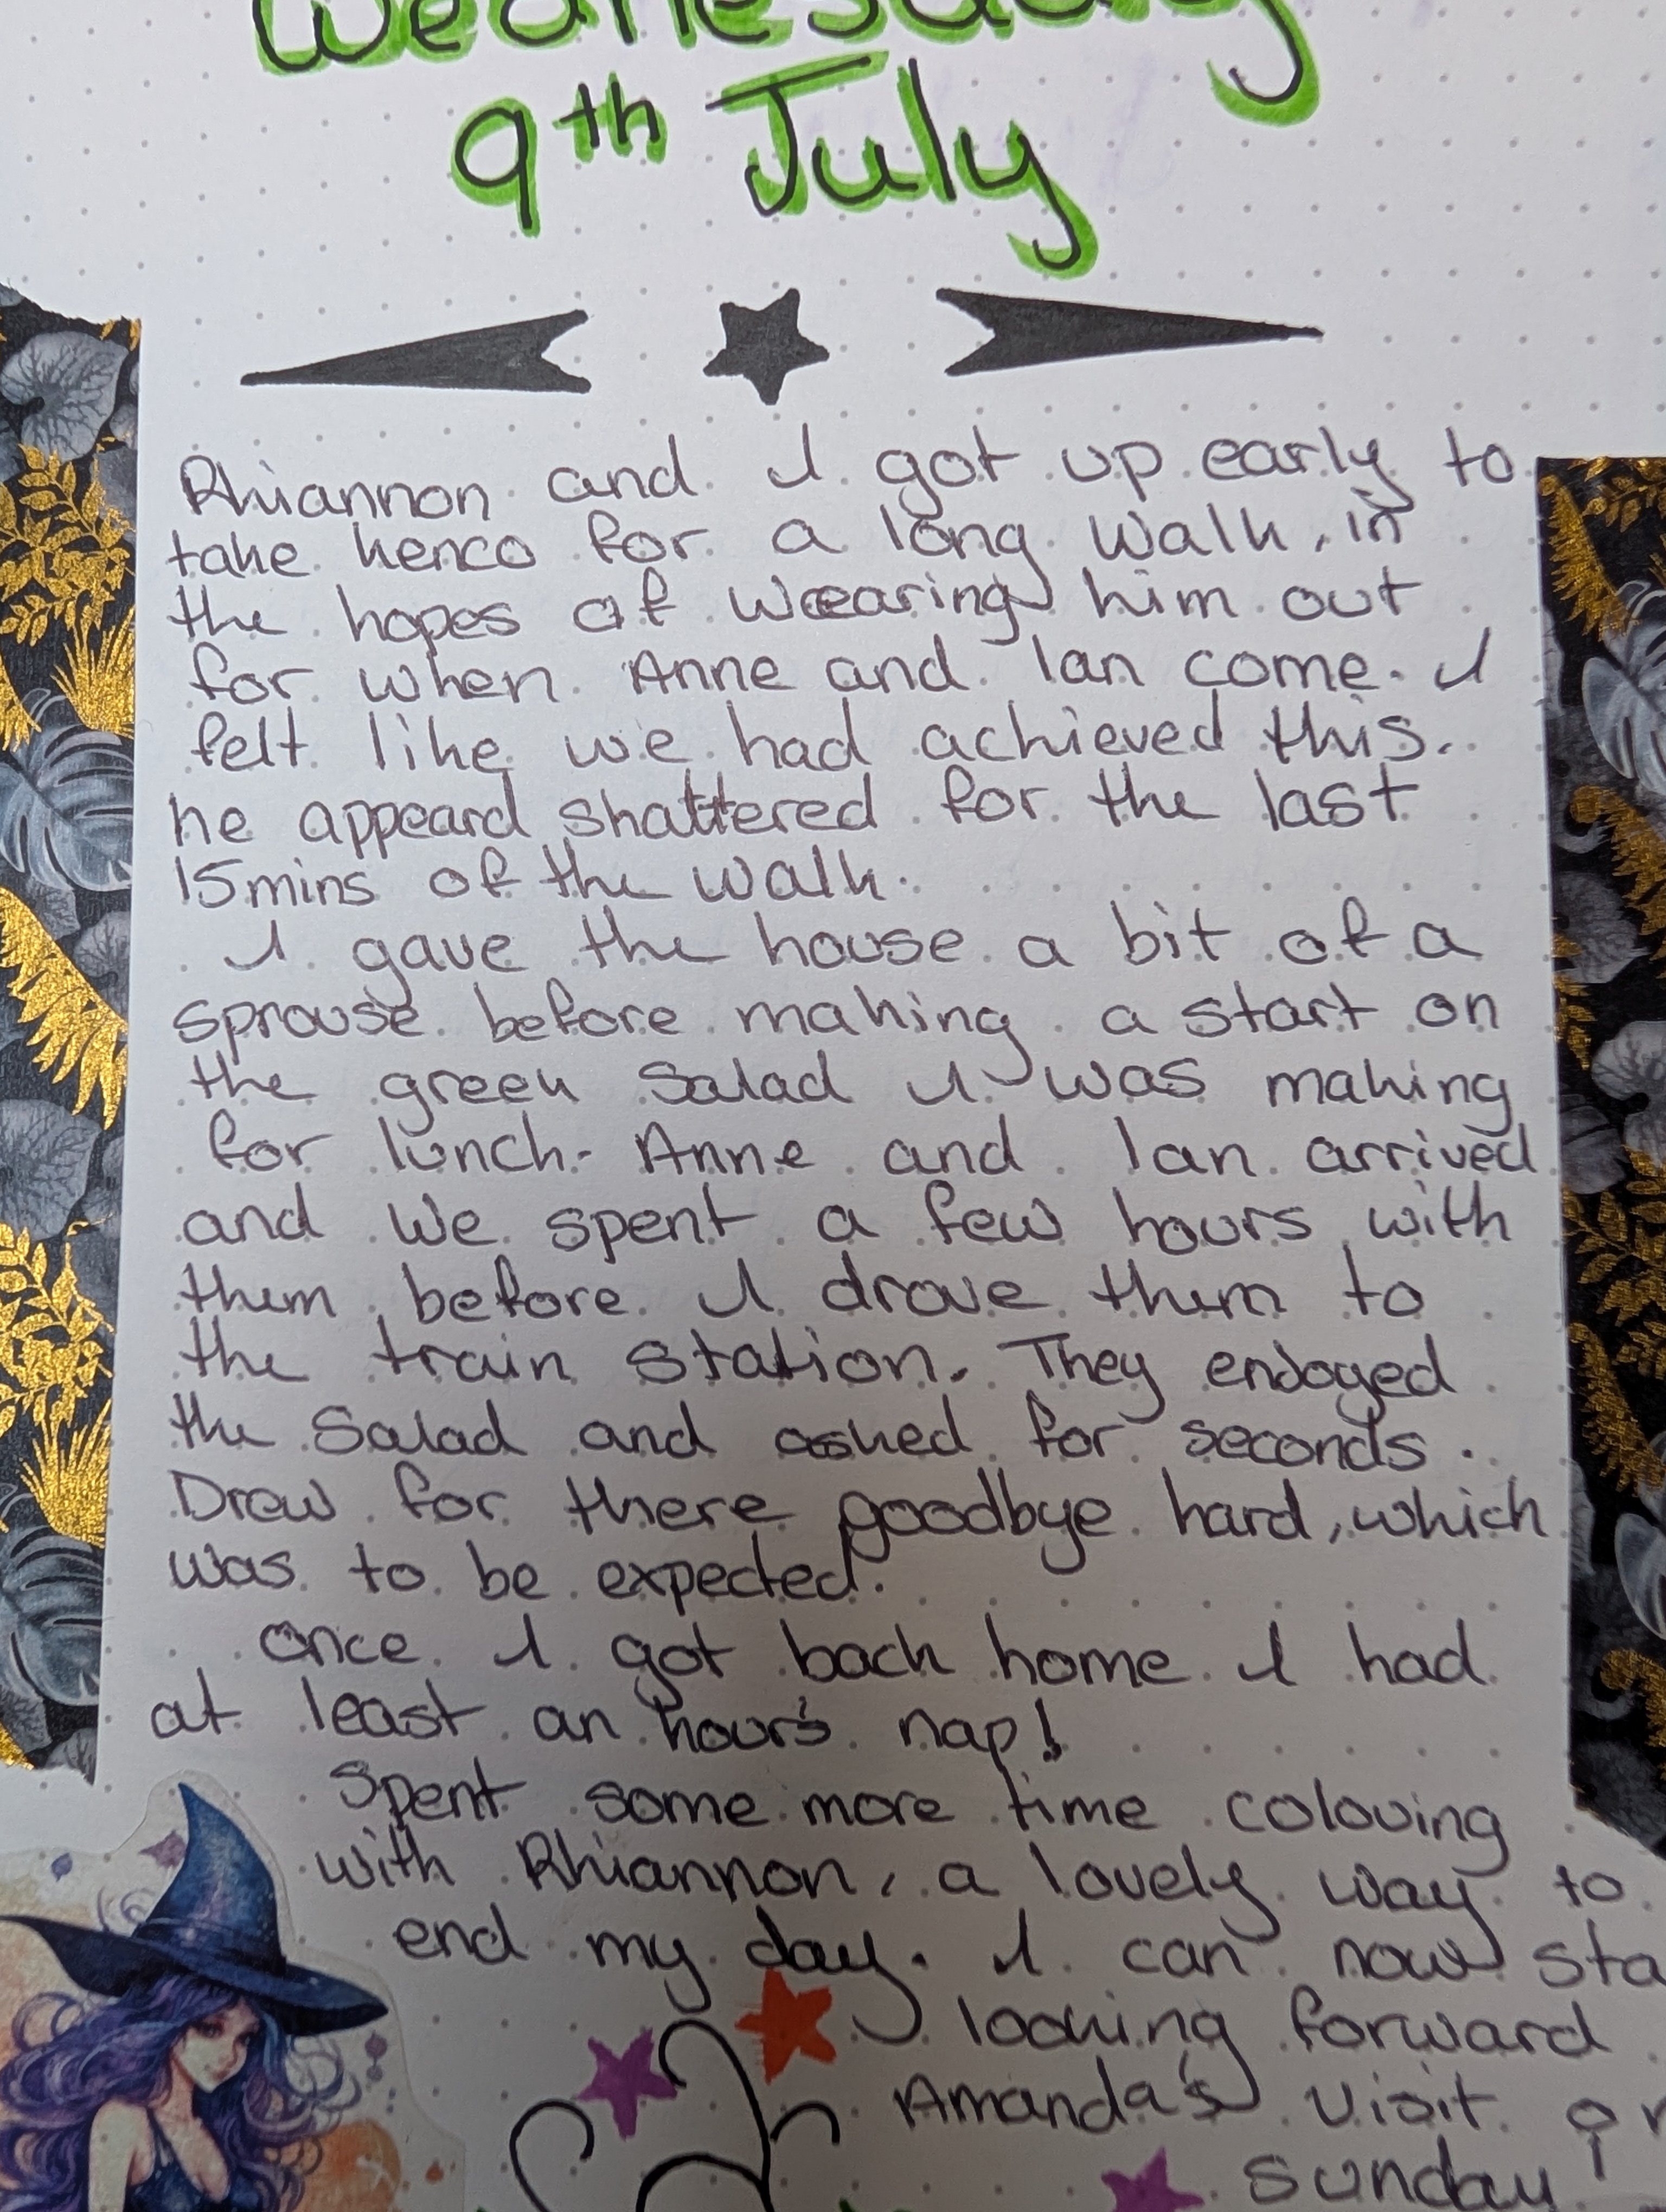 Wednesday
9th July
Rhiannon and I got up early to
take kenco for a long walk, in
the hopes of wearing him out
for when Anne and Ian come. I
felt like we had achieved this.
he appeard shattered for the last
15mins of the walk.
I gave the house a bit of a
sprouse before making a start on
the green salad I was making
for lunch. Anne and Ian arrived
and we spent a few hours with
them before I drove them to
the train station. They enjoyed
the salad and asked for seconds.
Drew for there goodbye hard, which
was to be expected.
Once I got back home I had
at least an hour's nap!
Spent some more time colouing
with Rhiannon, a lovely way to
end my day. I can now sta
looking forward
Amanda's visit on
Sunday